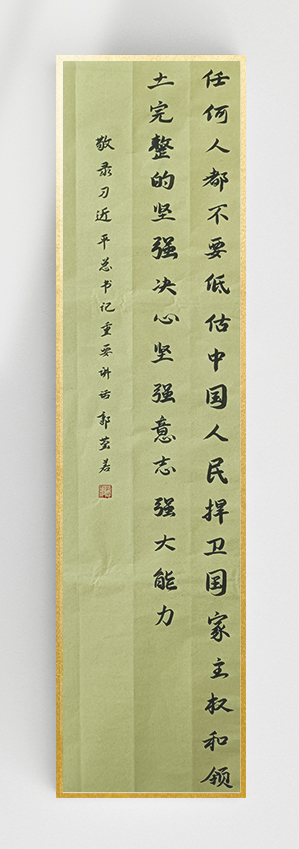 任何人都不要低估中国人民捍卫国家主权和领
土完整的坚强决心坚强意志强大能力
敬录习近平总书记重要讲话郭莹若